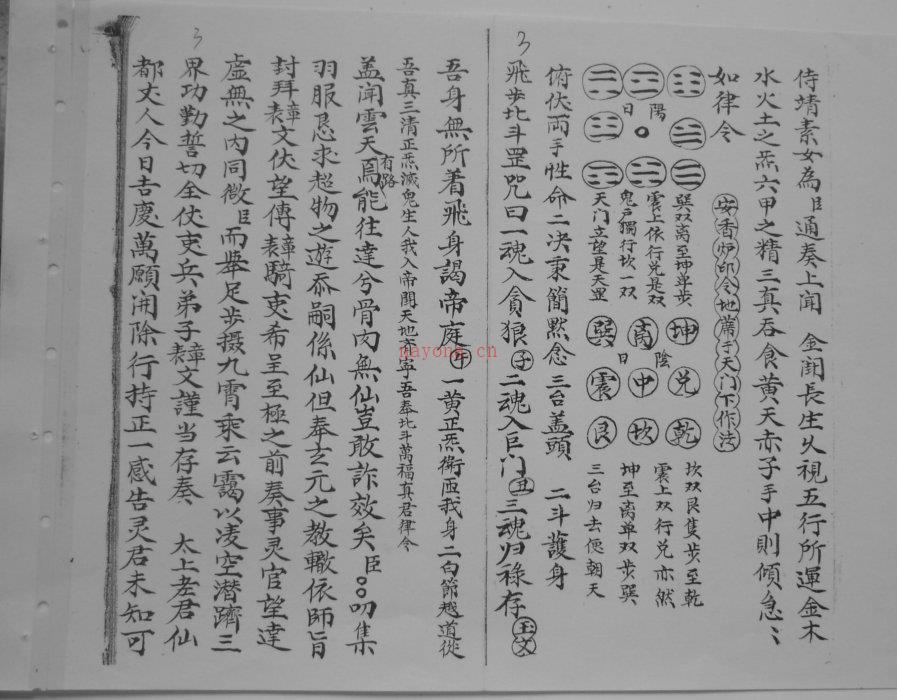 3
侍靖素女為臣通奏上聞 金闕長生久視五行所運金木
水火土之炁六甲之精三真吞食黄天赤子手中則傾急〻
如律令
安香炉印令地蓆于天门下作法
陽
日
巽双离至坤单步
震上依行兑是双
鬼戸獨行坎一双
天门立望是天罡
坤 兑 乾
陰
日
离 中 坎
巽 震 艮
坎双艮隻步至乾
震上双行兑亦然
坤至离单双步巽
三台归去便朝天
俯伏両手性命二决秉簡黙念 三台盖頭 二斗護身
飛步北斗罡咒曰一魂入貪狼子二魂入巨门丑三魂归禄存
3
吾身無所着飛身謁帝庭 一黄正炁衛匝我身二白節越道從
吾真三清正炁滅鬼生人我入帝閽天地育寧吾奉北斗萬福真君律令
盖聞雲天有路焉能往達兮骨肉無仙豈敢詐效矣臣〇〇叨集
羽服恳求超物之遊忝嗣係仙但奉玄元之教轍依師旨
封拜章表文伏望傳章表騎吏希呈至極之前奏事灵官望達
虚無之内同微臣而舉足步摄九霄乘云靄以凌空潜躋三
界功勤誓切全伏吏兵弟子章表文謹当存奏 太上老君仙
都丈人今日吉慶萬願開除行持正一感告灵君未知可
nayong.cn